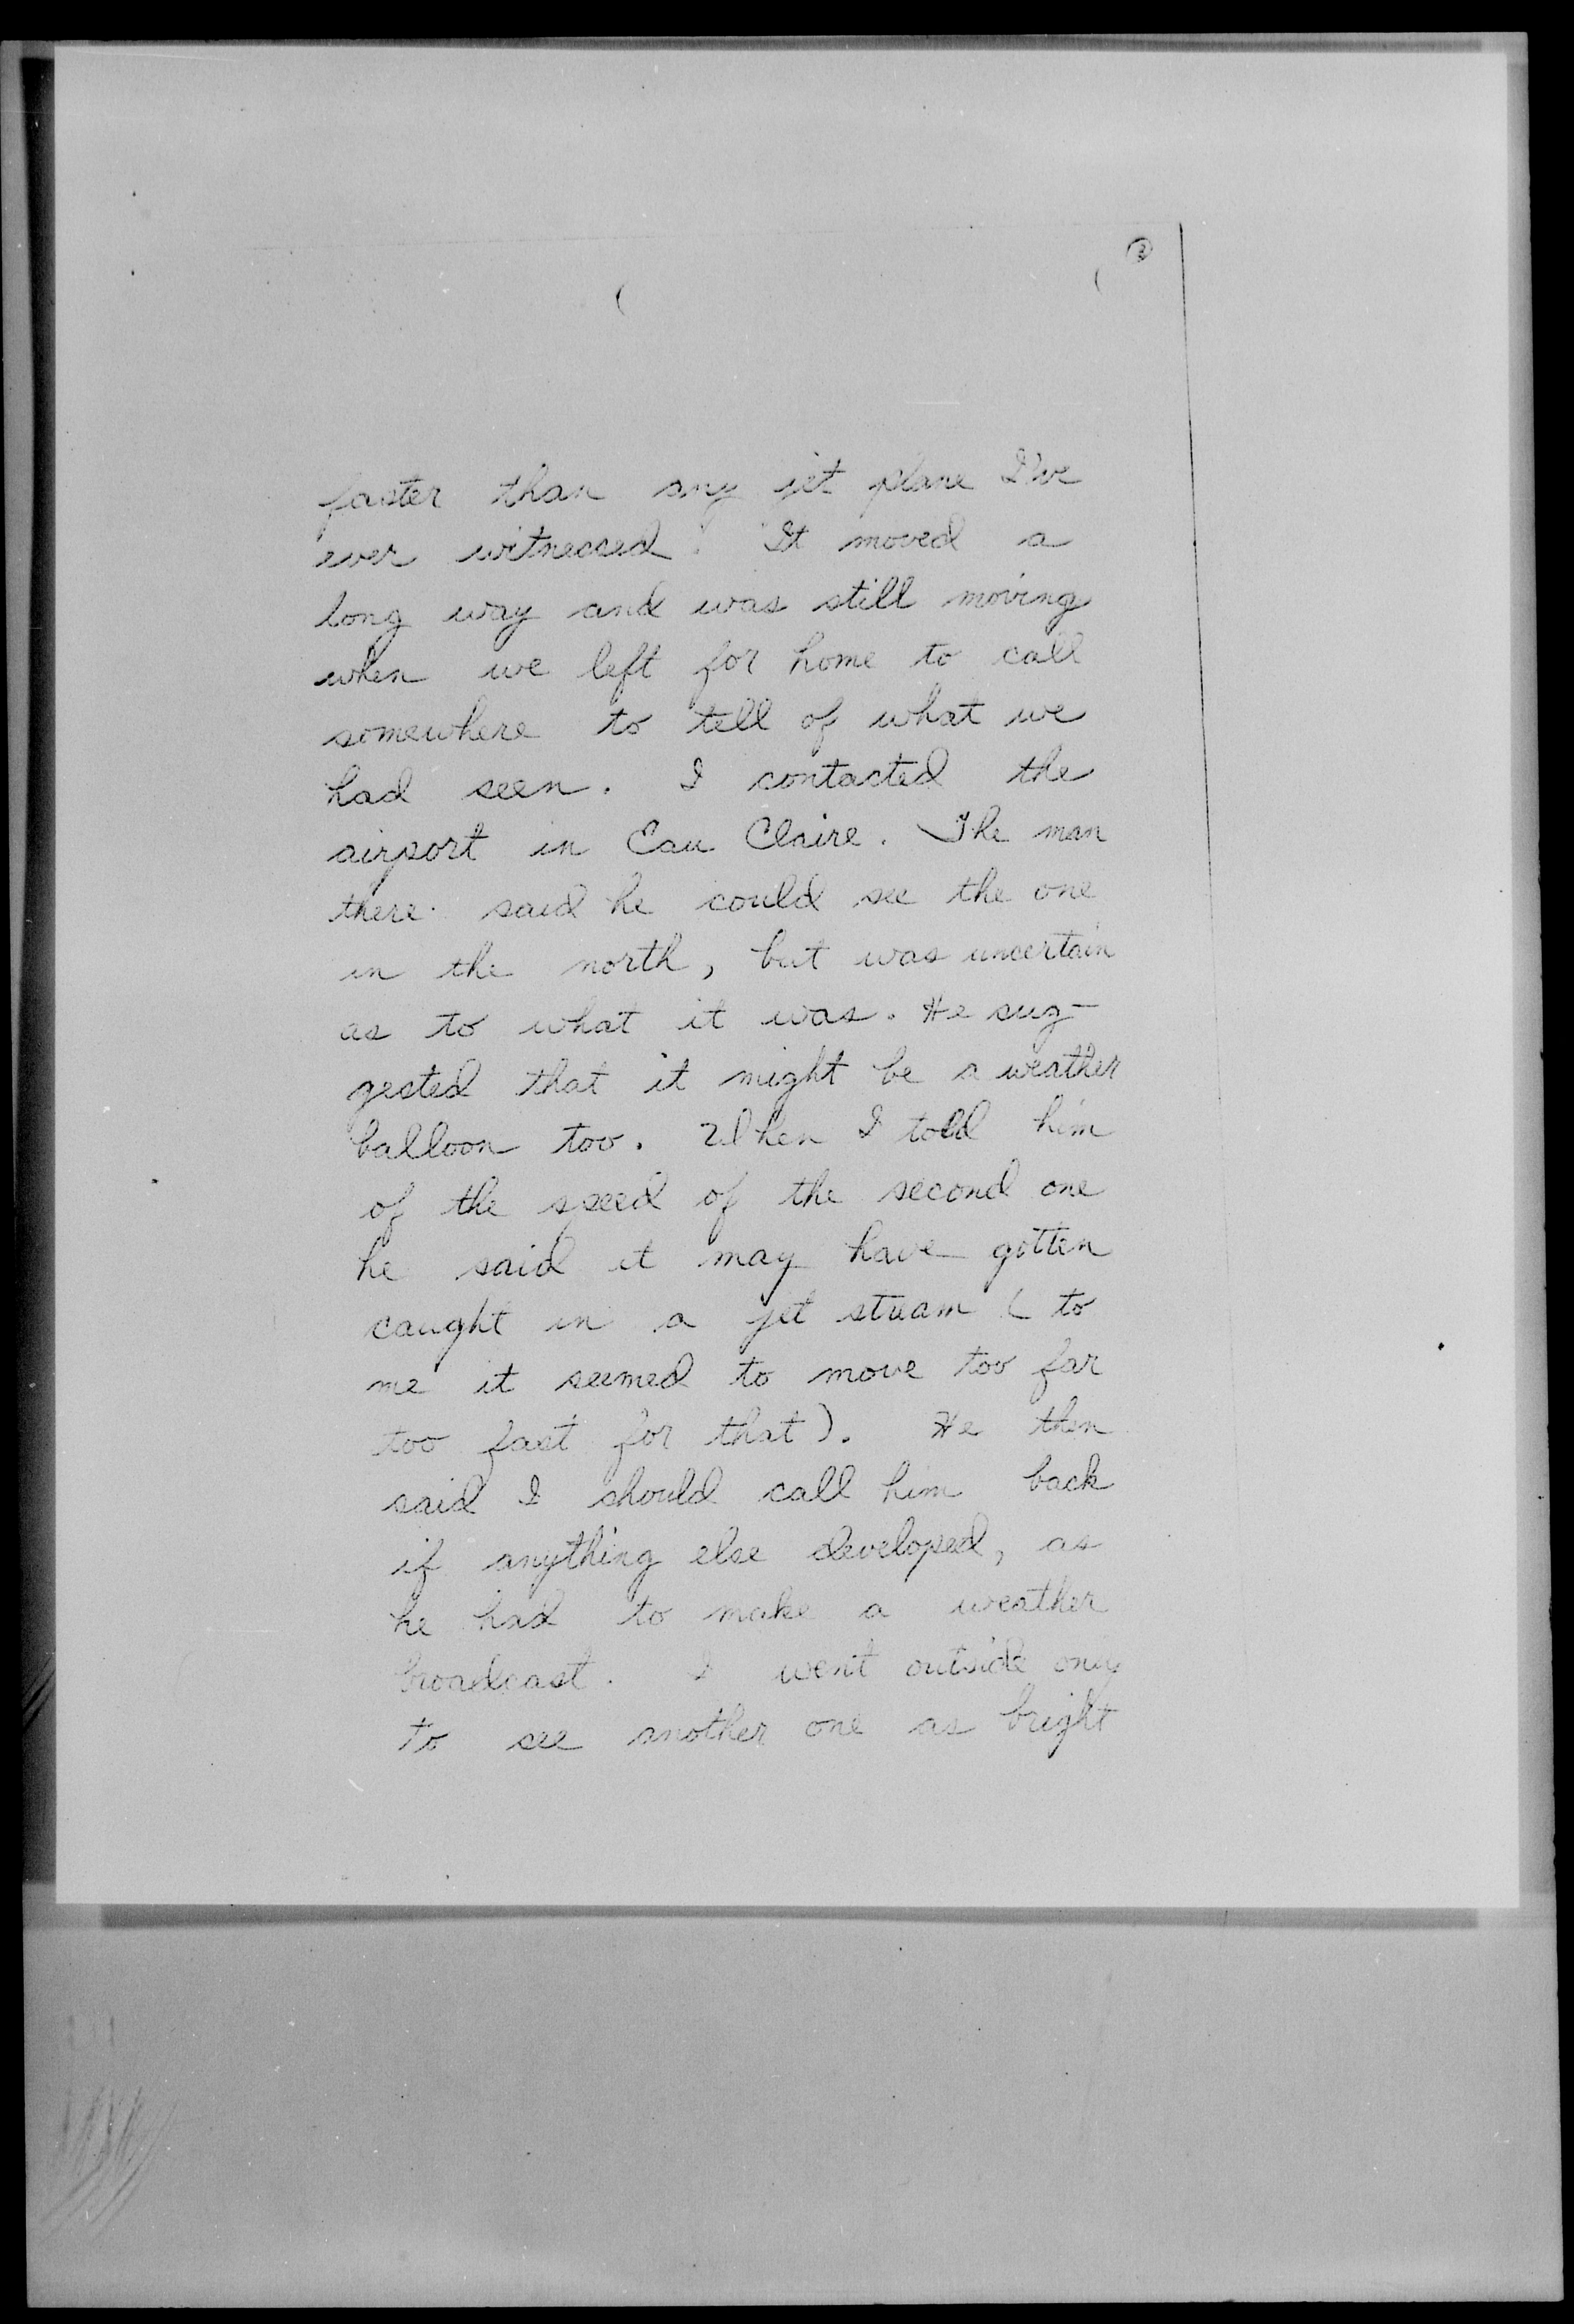 faster than any jet plane I've
ever witnessed. It moved a
long way and was still moving
when we left for home to call
somewhere to tell of what we
had seen. I contacted the
airport in Eau Claire. The man
there said he could see the one
in the north, but was uncertain
as to what it was. He sug-
gested that it might be a weather
balloon too. When I told him
of the speed of the second one
he said it may have gotten
caught in a jet stream (to
me it seemed to move too far
too fast for that). He then
said I should call him back
if anything else developed, as
he had to make a weather
broadcast. I went outside only
to see another one as bright